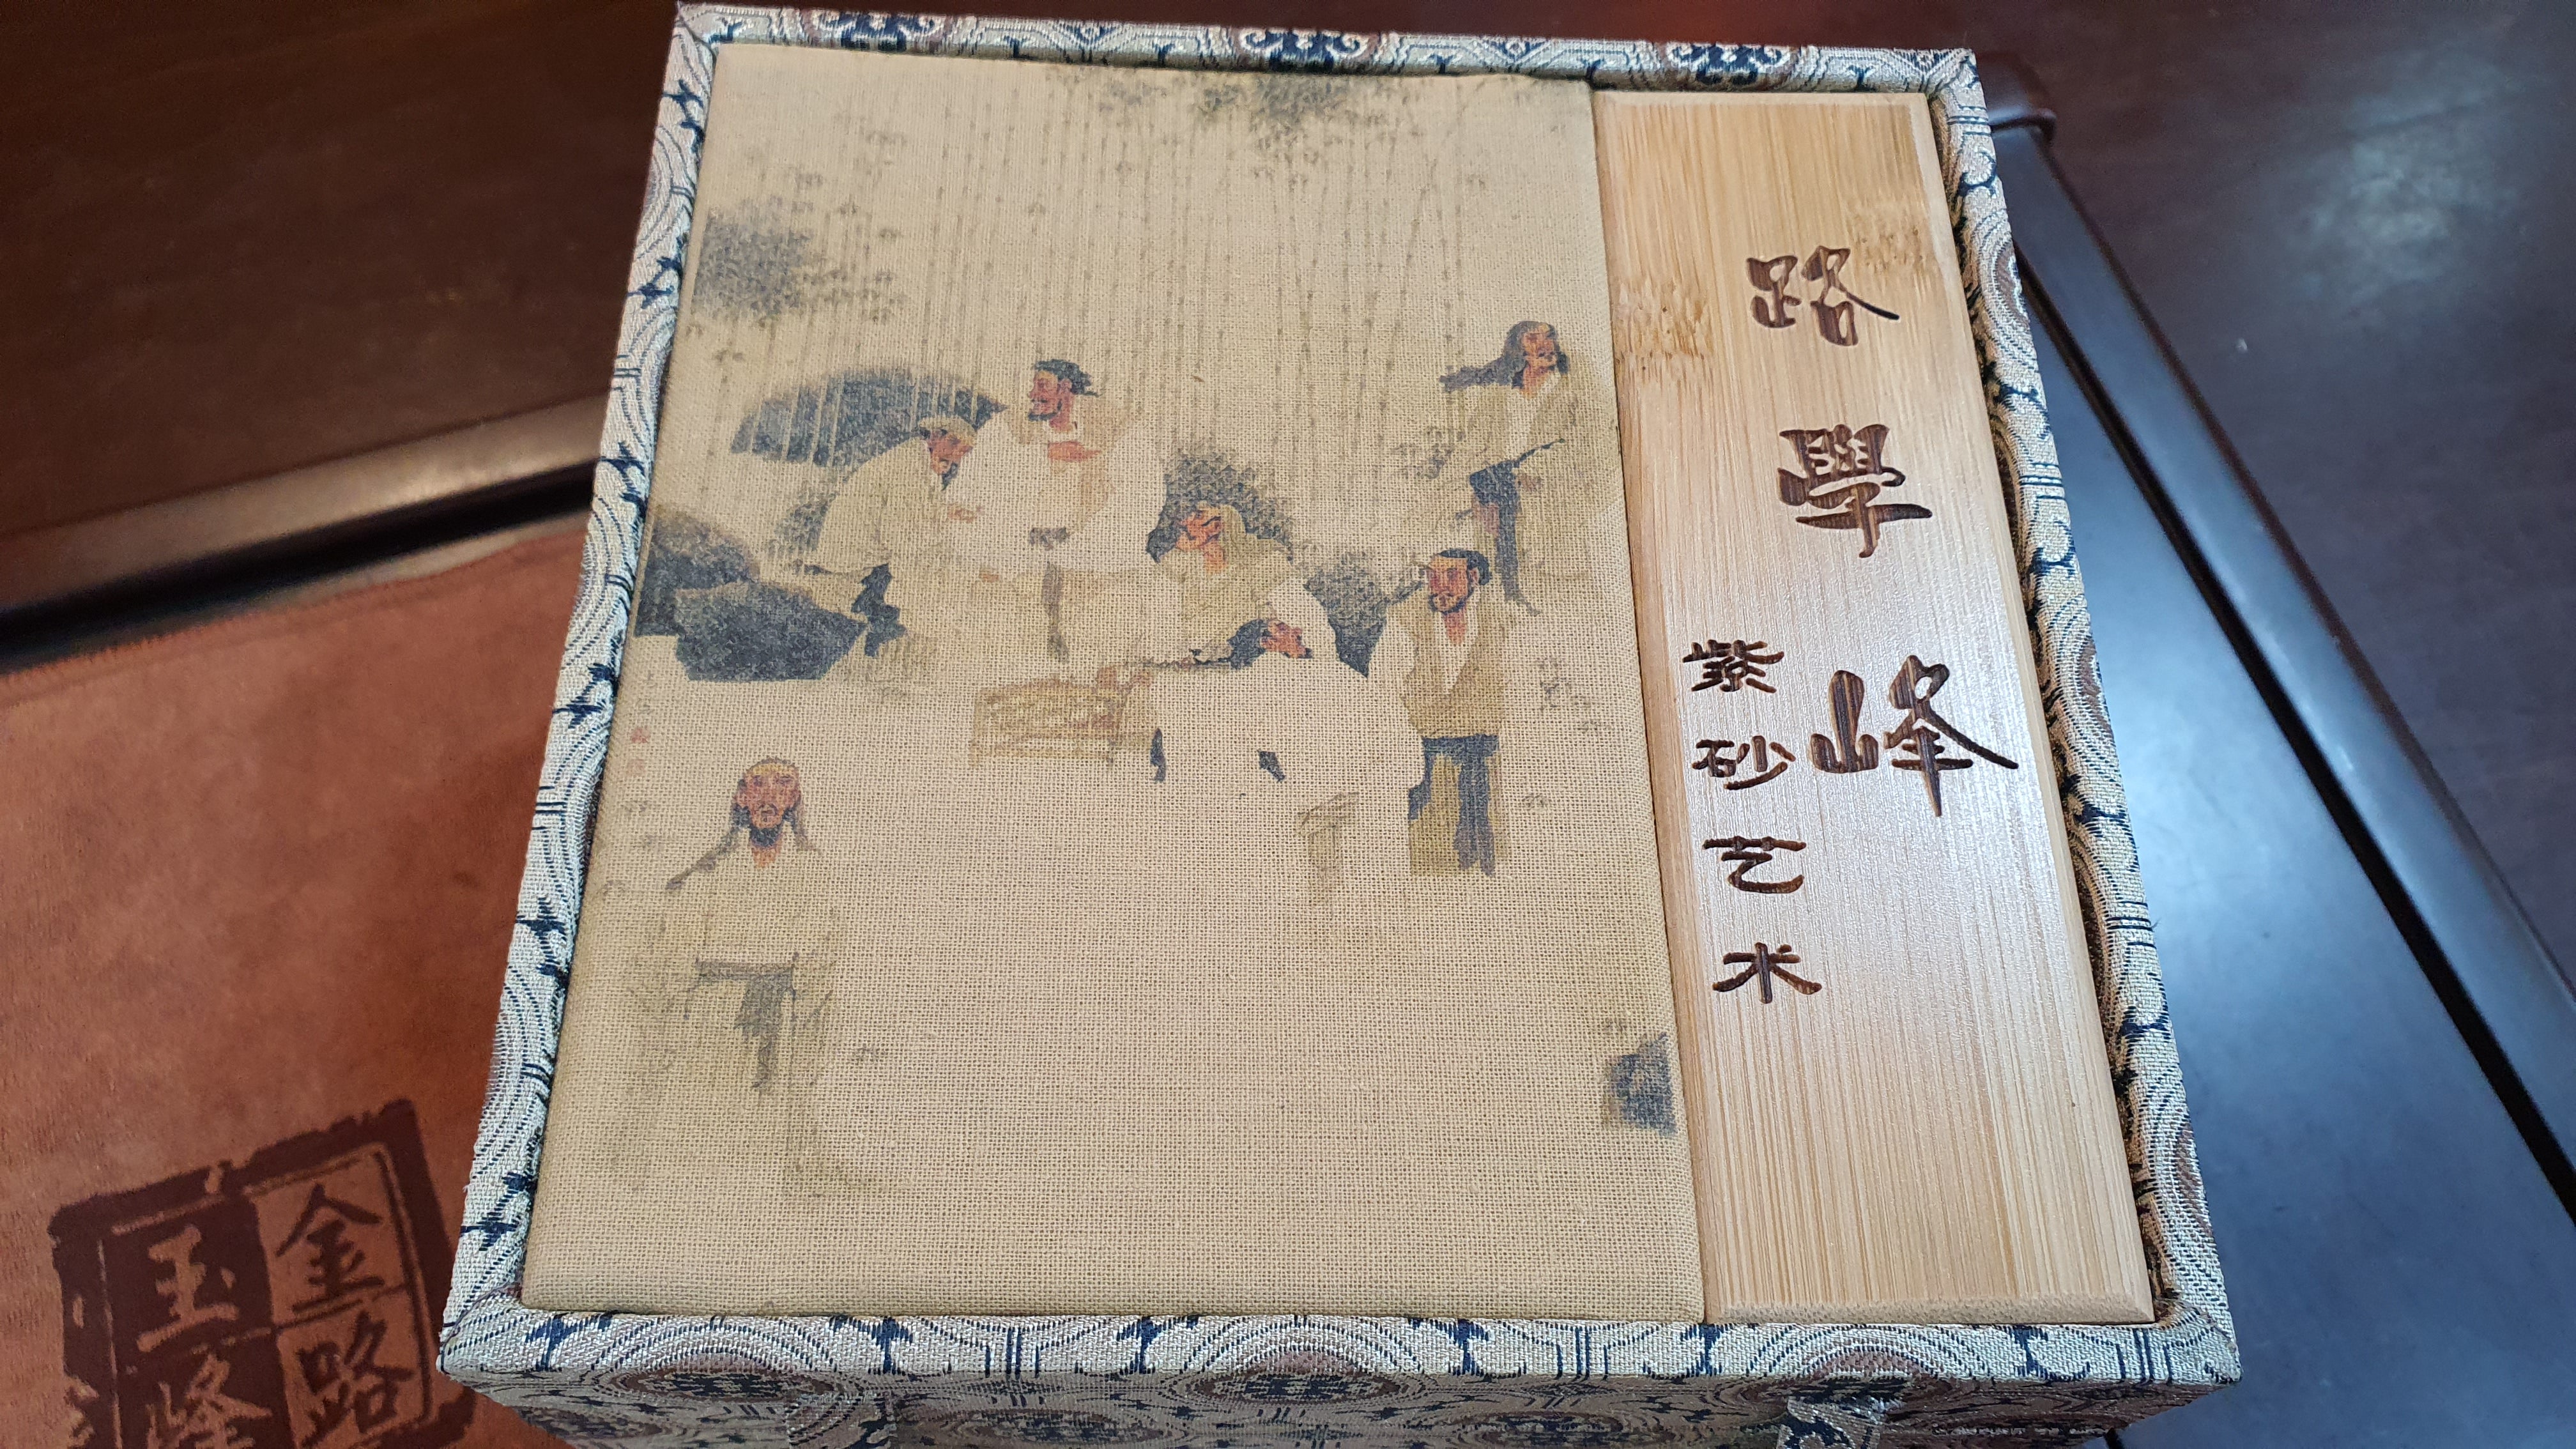 路學峰
紫砂艺术
金路
玉峰